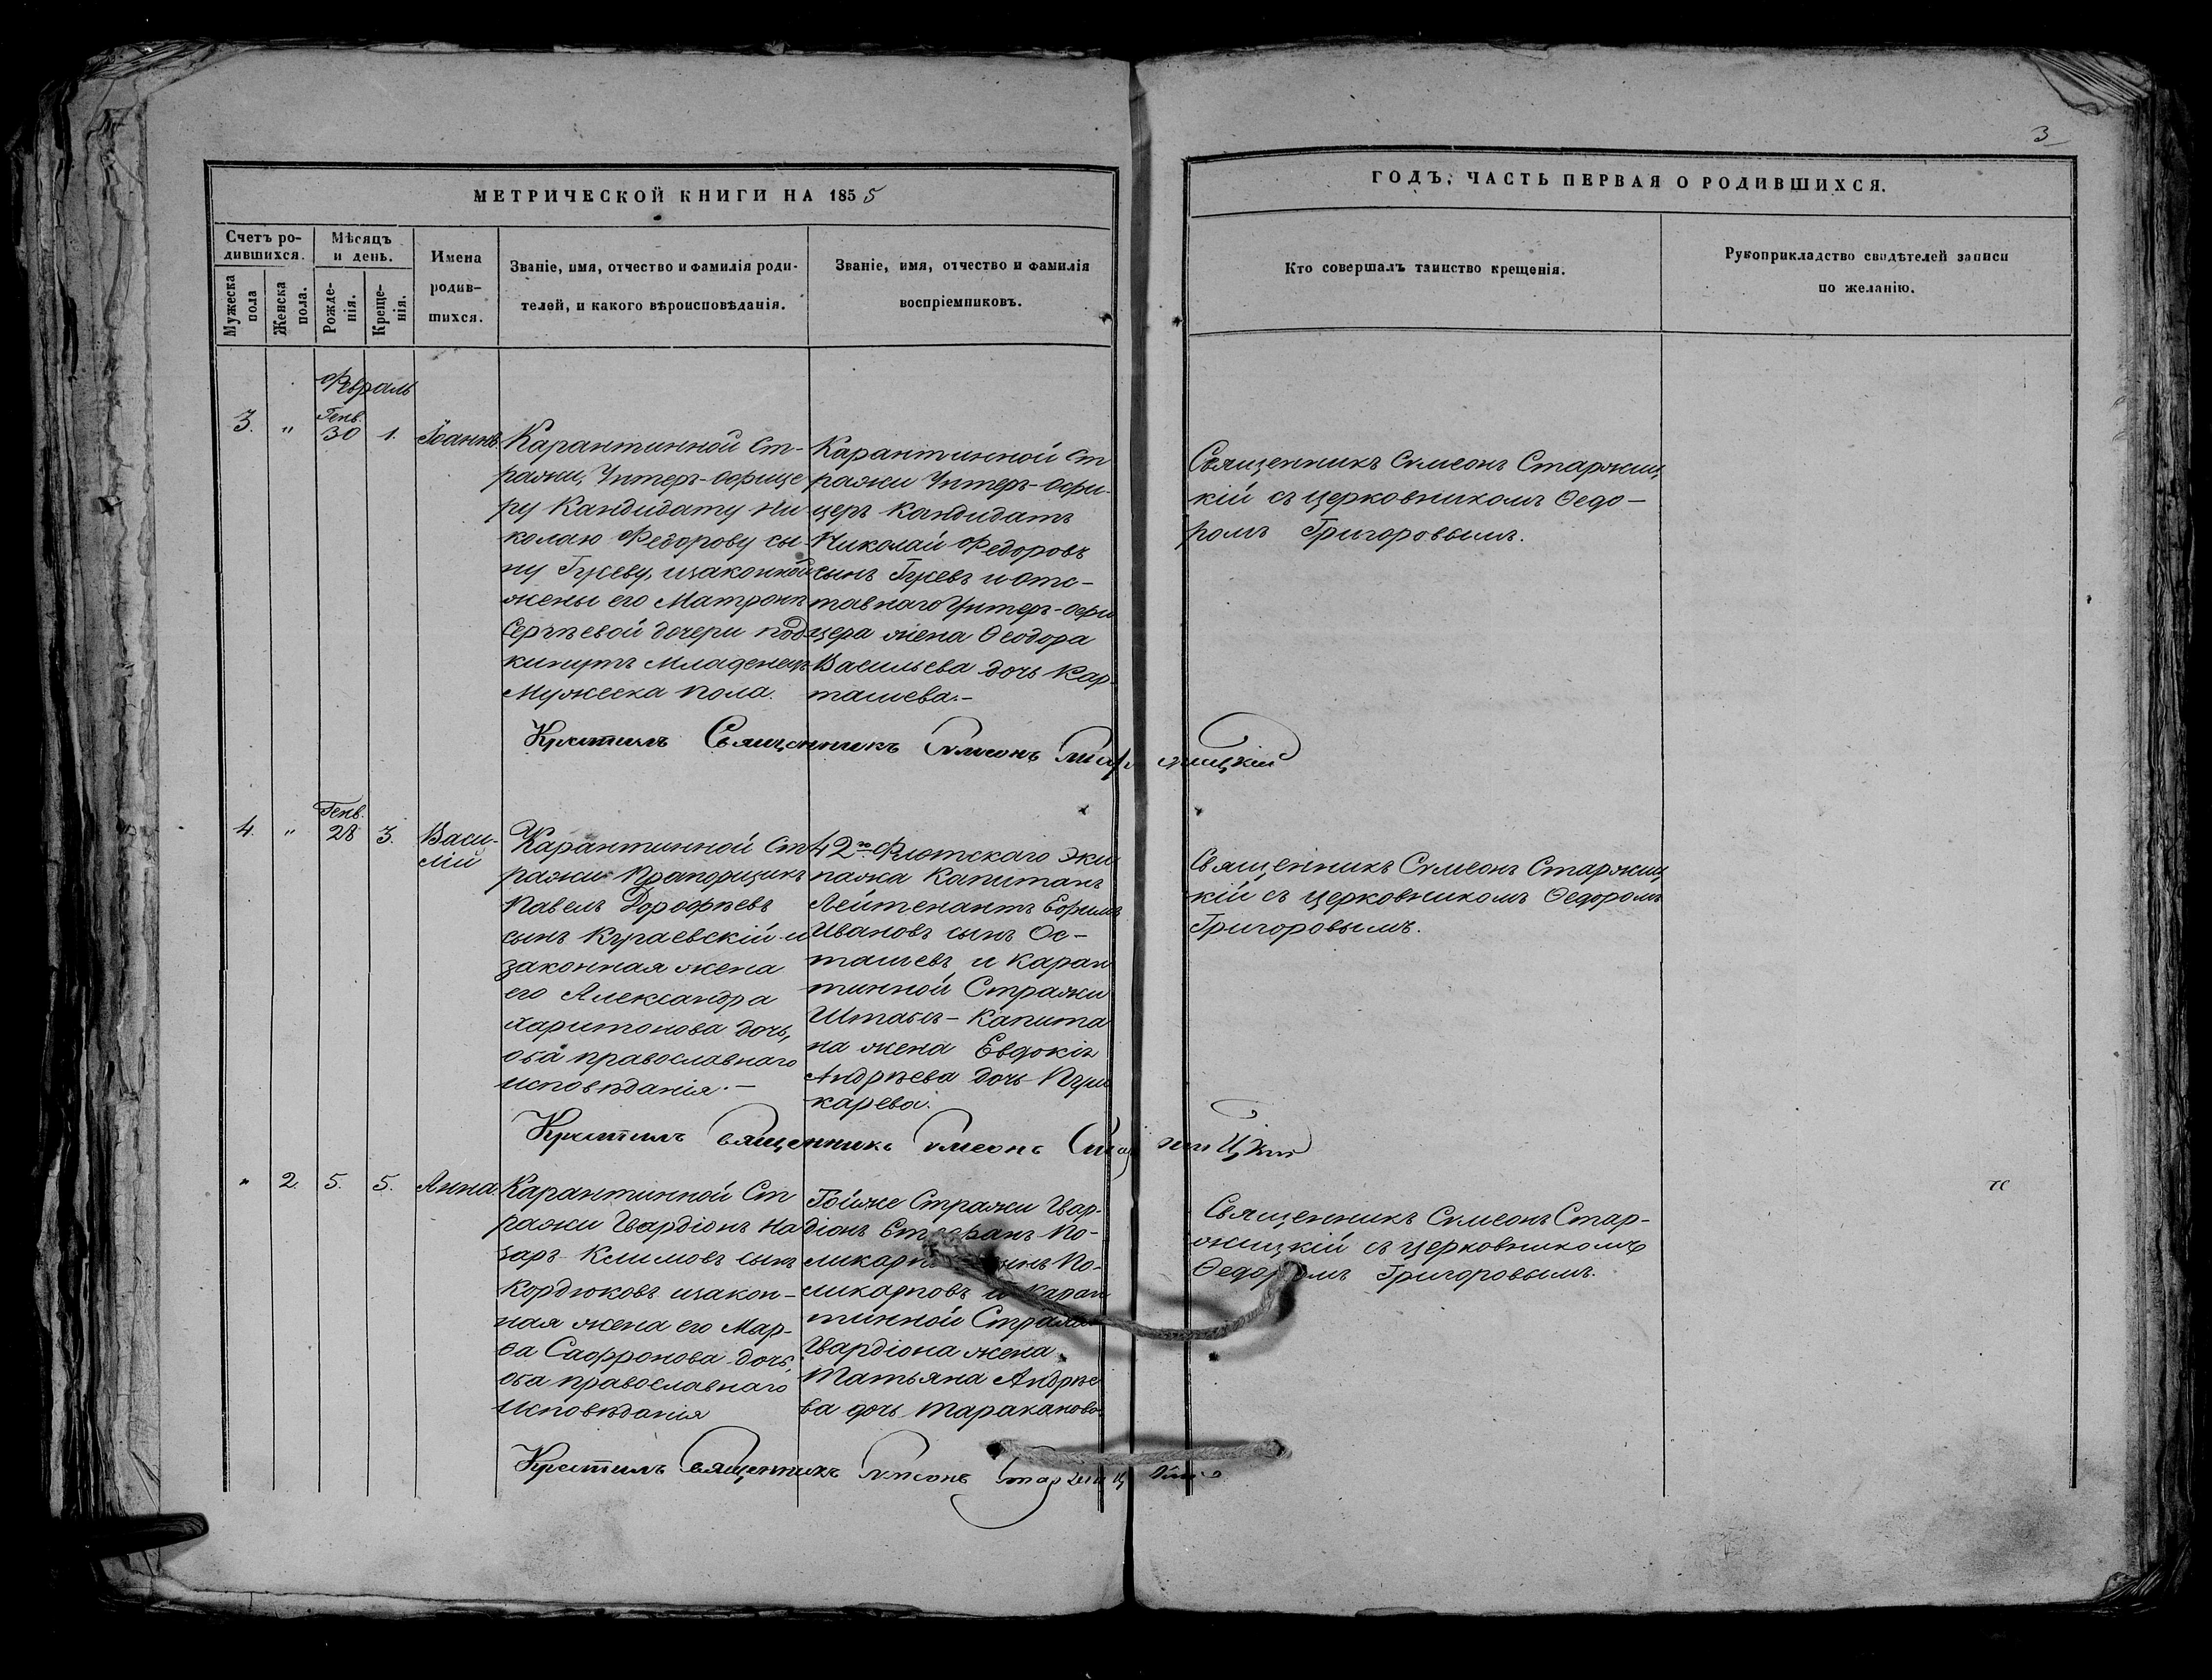 3
МЕТРИЧЕСКОЙ КНИГИ НА 1855
ГОДЪ, ЧАСТЬ ПЕРВАЯ О РОДИВШИХСЯ.
Счетъ ро-
дившихся.
Мужеска
пола
Женска
пола.
Мѣсяцъ
и день.
Рожде-
нія.
Креще-
нія.
Имена
родив-
шихся.
Званіе, имя, отчество и фамилія роди-
телей, и какого вѣроисповѣданія.
Званіе, имя, отчество и фамилія
воспріемниковъ.
Кто совершалъ таинство крещенія.
Рукоприкладство свидѣтелей записи
по желанію.
Февраль
3. " Генв. 30 1. Іоаннъ.
Карантинной Ст-
ражи, Унтеръ-офице
ру Кандидату Ни
колаю Федорову сы-
ну Гусеву, изаконной
жены его Матроны
Сергѣевой дочери под
кинутъ младенецъ
Мужеска пола.
Карантинной Ст
ражи Унтеръ-офи-
церъ Кандидатъ
Николай Федоровъ
сынъ Гусевъ и отс-
тавнаго Унтеръ-офи
цера жена Ѳеодора
Васильева дочь Кар-
ташева.-
Священникъ Симеонъ Старжиц
кій съ церковникомъ Ѳедо-
ромъ Григоровымъ.
Крестилъ Священникъ Симеонъ Старжицкій
4. " Генв. 28 3. Васи-
лій
Карантинной Ст
ражи Прапорщикъ
Павелъ Дорофѣевъ
сынъ Кураевскій и
законная жена
его Александра
Харитонова дочь,
оба православнаго
исповѣданія.-
42го Флотскаго Эки
пажа Капитанъ
Лейтенантъ Ефимъ
Ивановъ сынъ Ос-
ташевъ и Каран
тинной Стражи
Штабсъ-Капита
на жена Евдокія
Андрѣева дочь Пуш
карева.
Священникъ Симеонъ Старжиц
кій съ церковникомъ Ѳедоромъ
Григоровымъ.
Крестилъ Священникъ Симеонъ Старжицкій
" 2. 5. 5. Анна.
Карантинной Ст
ражи Гвардіонъ На
заръ Климовъ сынъ
Кордюковъ изакон-
ная жена его Мар-
ѳа Сафронова дочь,
оба православнаго
Исповѣданія
Тойже Стражи Гвар-
діонъ Стефанъ По-
ликарп сынъ По-
ликарповъ и Каран
тинной Стражи
Гвардіона жена
Татьяна Андрѣе
ва дочь Тараканова
Священникъ Симеонъ Стар-
жицкій съ церковникомъ
Ѳедоромъ Григоровымъ.
Крестилъ Священникъ Симеонъ Старжицкій